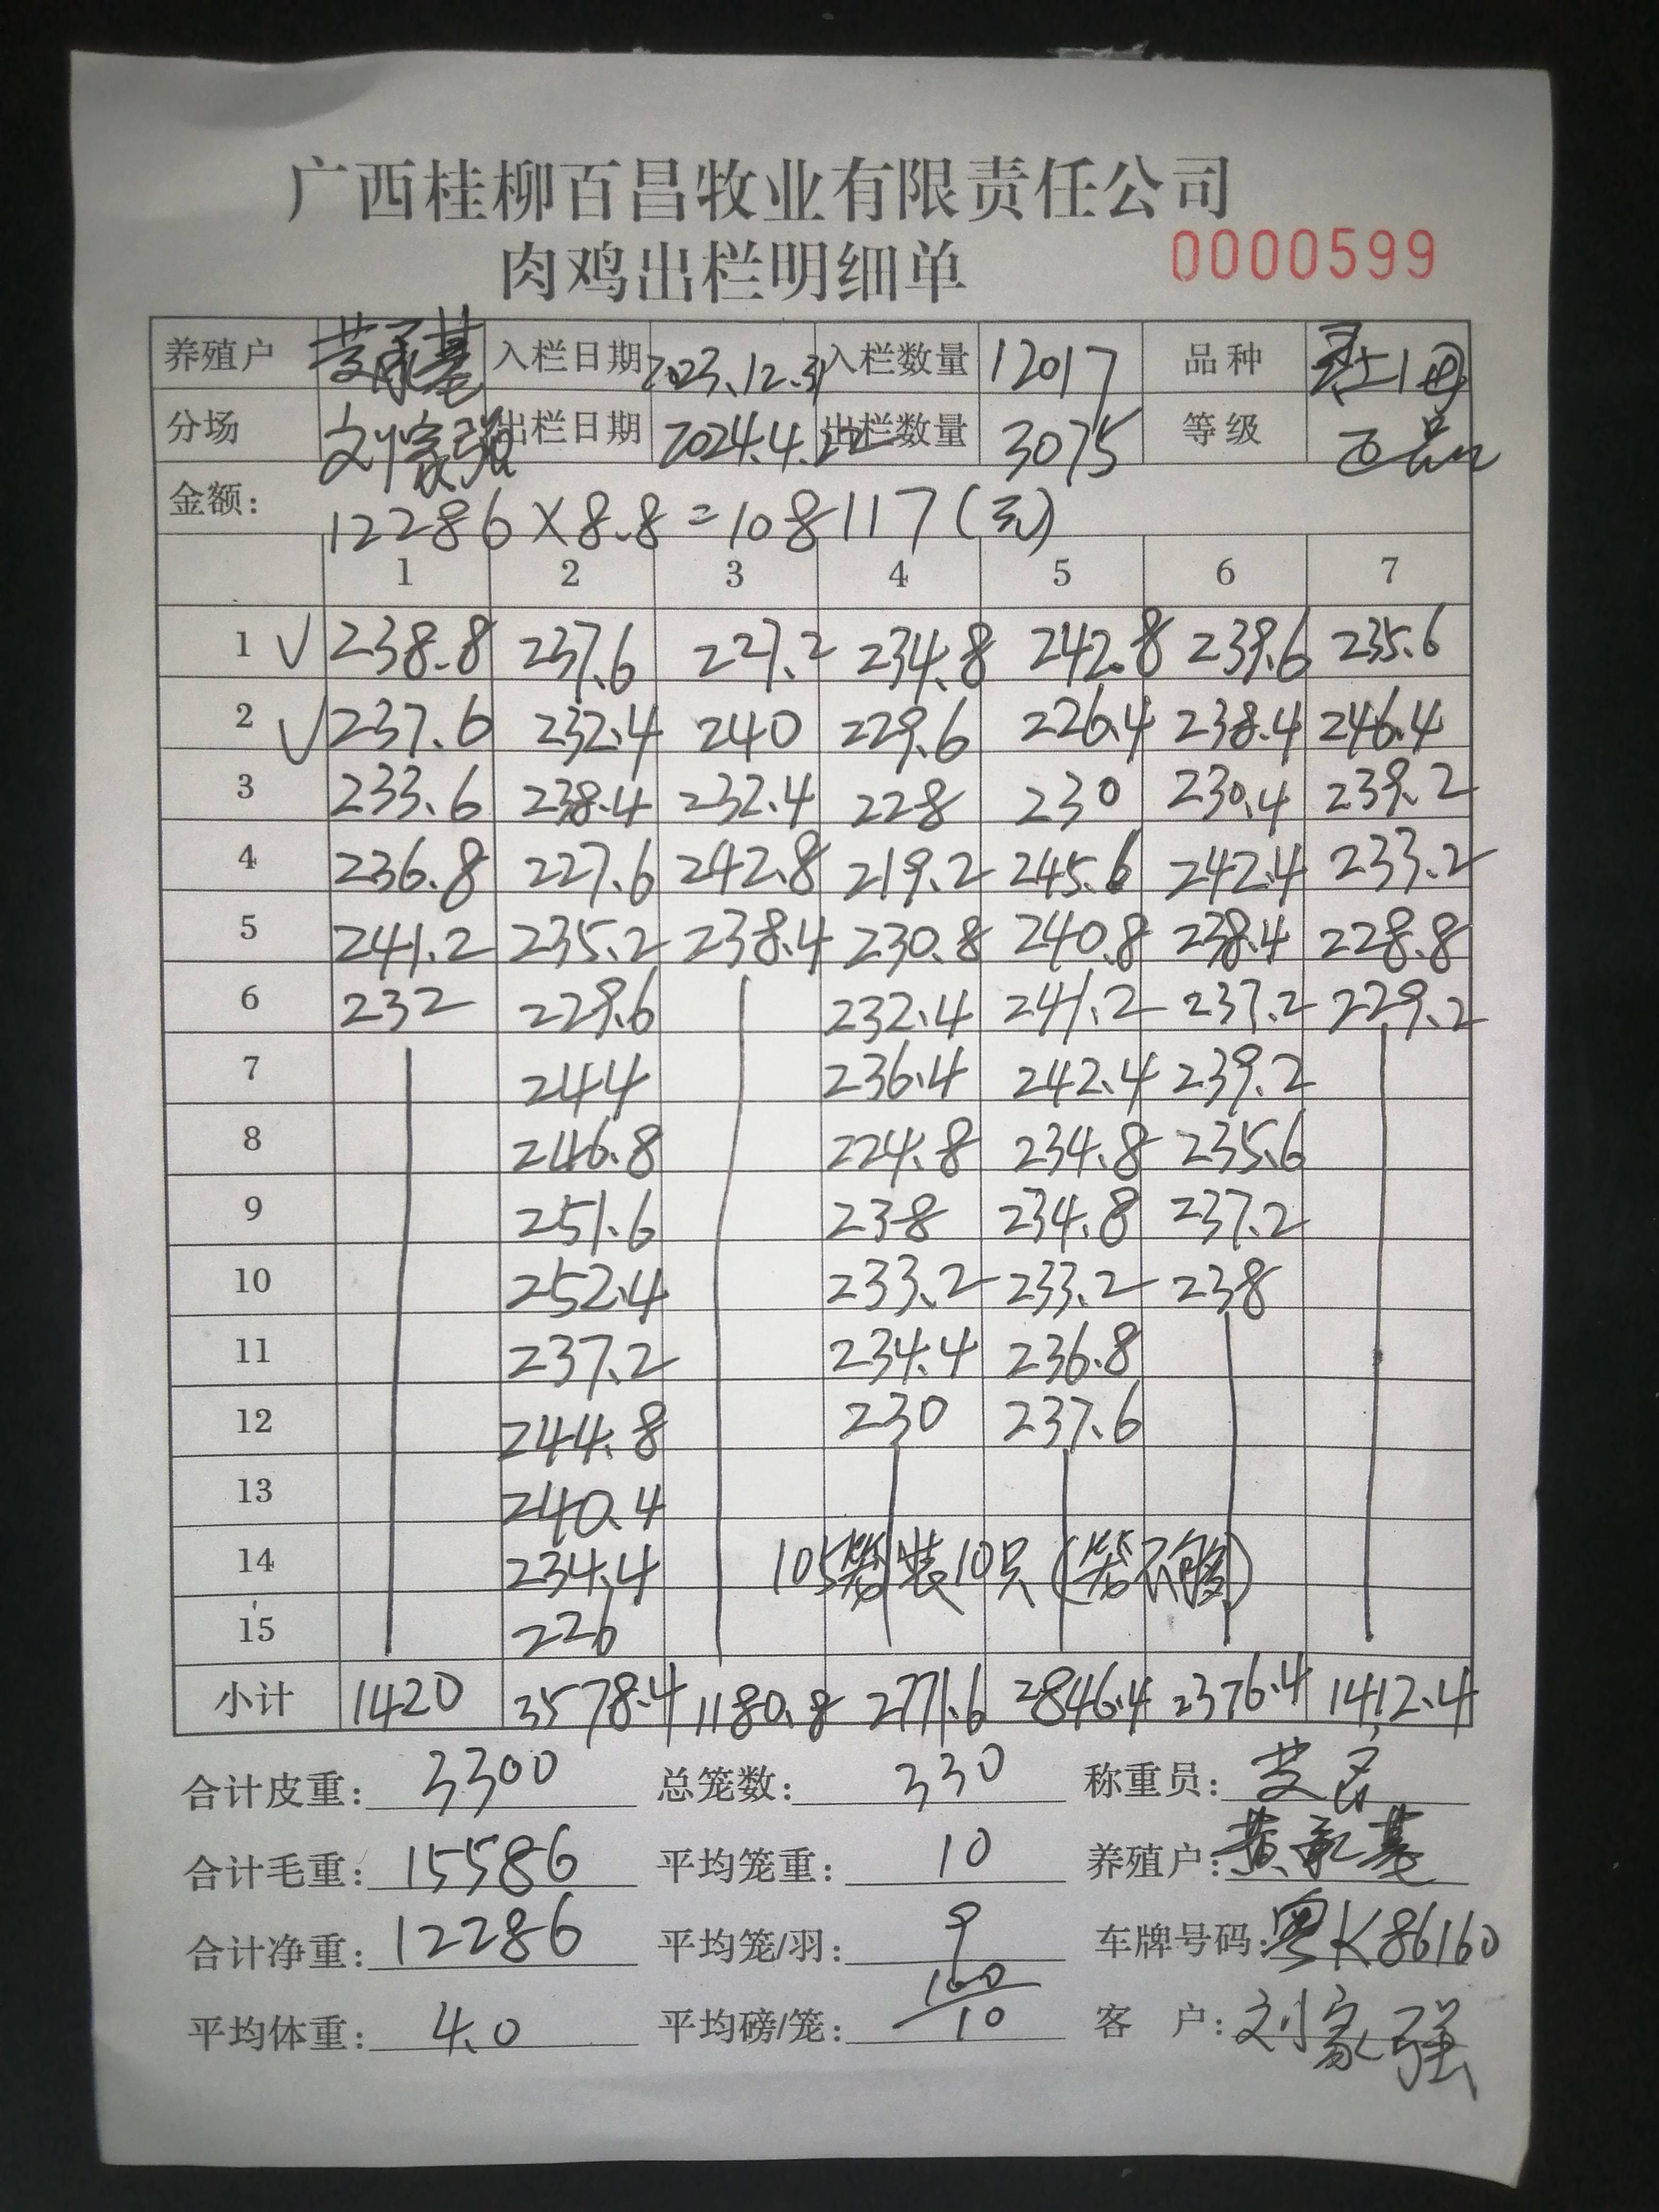 广西桂柳百昌牧业有限责任公司
肉鸡出栏明细单 0000599
养殖户 黄承基 入栏日期 2023.12.31 入栏数量 12017 品种 土1
分场 刘家强 出栏日期 2024.4.22 出栏数量 3075 等级 正品
金额: 12286×8.8=108117(元)
1 2 3 4 5 6 7
1 √ 238.8 237.6 227.2 234.8 242.8 239.6 235.6
2 √ 237.6 232.4 240 229.6 226.4 238.4 246.4
3 233.6 238.4 232.4 228 230 230.4 239.2
4 236.8 227.6 242.8 219.2 245.6 242.4 233.2
5 241.2 235.2 238.4 230.8 240.8 238.4 228.8
6 232 229.6 232.4 241.2 237.2 229.2
7 244 236.4 242.4 239.2
8 246.8 224.8 234.8 235.6
9 251.6 238 234.8 237.2
10 252.4 233.2 233.2 238
11 237.2 234.4 236.8
12 244.8 230 237.6
13 240.4
14 234.4 105笼装10只(笼不够)
15 226
小计 1420 3578.4 1180.8 2771.6 2846.4 2376.4 1412.4
合计皮重: 3300 总笼数: 330 称重员:
合计毛重: 15586 平均笼重: 10 养殖户: 黄承基
合计净重: 12286 平均笼/羽: 9 车牌号码: 粤K86160
平均体重: 4.0 平均磅/笼: 160/10 客 户: 刘家强